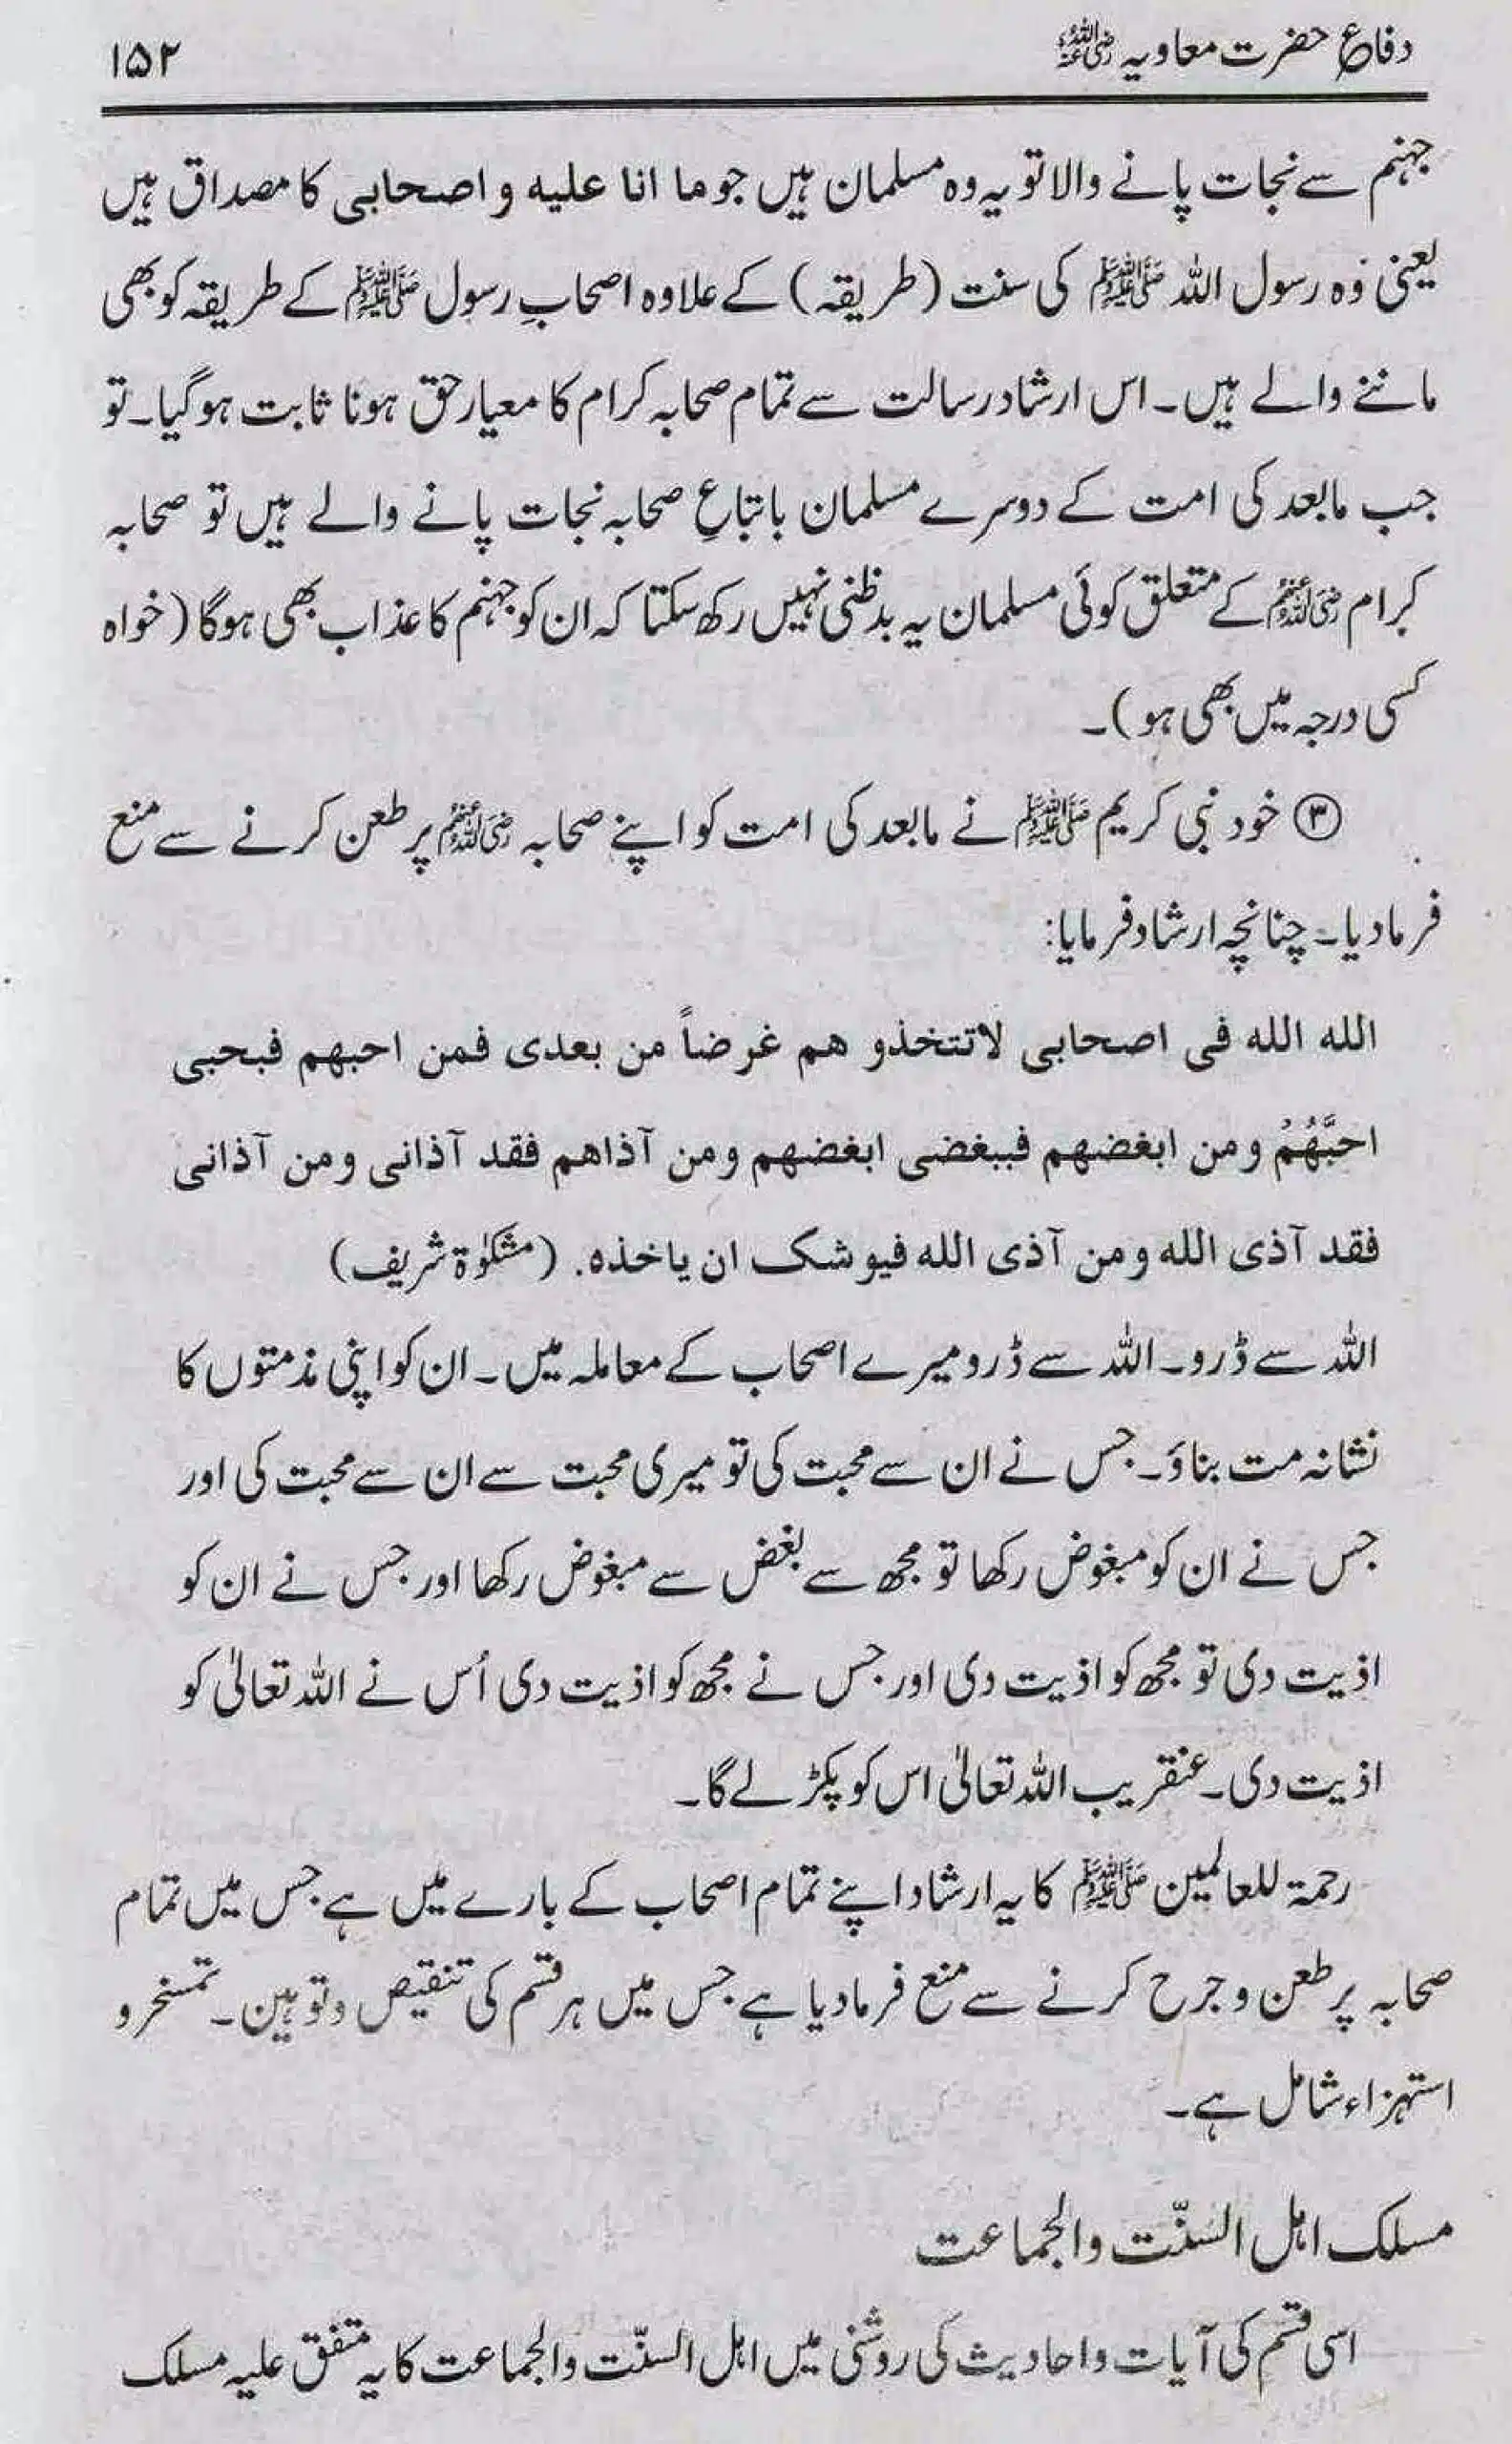 دفاع حضرت معاویہ رضی اللہ عنہ ۱۵۲
جہنم سے نجات پانے والا تو یہ وہ مسلمان ہیں جو ما انا علیه و اصحابی کا مصداق ہیں
یعنی وہ رسول اللہ ﷺ کی سنت (طریقہ) کے علاوہ اصحابِ رسول ﷺ کے طریقہ کو بھی
ماننے والے ہیں۔ اس ارشاد رسالت سے تمام صحابہ کرام کا معیار حق ہونا ثابت ہو گیا۔ تو
جب مابعد کی امت کے دوسرے مسلمان باتباعِ صحابہ نجات پانے والے ہیں تو صحابہ
کرام رضی اللہ عنہم کے متعلق کوئی مسلمان یہ بدظنی نہیں رکھ سکتا کہ ان کو جہنم کا عذاب بھی ہوگا (خواہ
کسی درجہ میں بھی ہو)۔
③ خود نبی کریم ﷺ نے مابعد کی امت کو اپنے صحابہ رضی اللہ عنہم پر طعن کرنے سے منع
فرما دیا۔ چنانچہ ارشاد فرمایا:
الله الله فی اصحابی لاتتخذو هم غرضاً من بعدی فمن احبهم فبحبی
احبَّهُمُ ومن ابغضهم فببغضی ابغضهم ومن آذاهم فقد آذانی ومن آذانی
فقد آذی الله ومن آذی الله فیوشک ان یاخذه. (مشکوٰۃ شریف)
اللہ سے ڈرو۔ اللہ سے ڈرو میرے اصحاب کے معاملہ میں۔ ان کو اپنی مذمتوں کا
نشانہ مت بناؤ۔ جس نے ان سے محبت کی تو میری محبت سے ان سے محبت کی اور
جس نے ان کو مبغوض رکھا تو مجھ سے بغض سے مبغوض رکھا اور جس نے ان کو
اذیت دی تو مجھ کو اذیت دی اور جس نے مجھ کو اذیت دی اُس نے اللہ تعالیٰ کو
اذیت دی۔ عنقریب اللہ تعالیٰ اس کو پکڑ لے گا۔
رحمۃ للعالمین ﷺ کا یہ ارشاد اپنے تمام اصحاب کے بارے میں ہے جس میں تمام
صحابہ پر طعن و جرح کرنے سے منع فرما دیا ہے جس میں ہر قسم کی تنقیص و توہین۔ تمسخر و
استہزاء شامل ہے۔
مسلک اہل السنّت والجماعت
اسی قسم کی آیات و احادیث کی روشنی میں اہل السنّت والجماعت کا یہ متفق علیہ مسلک